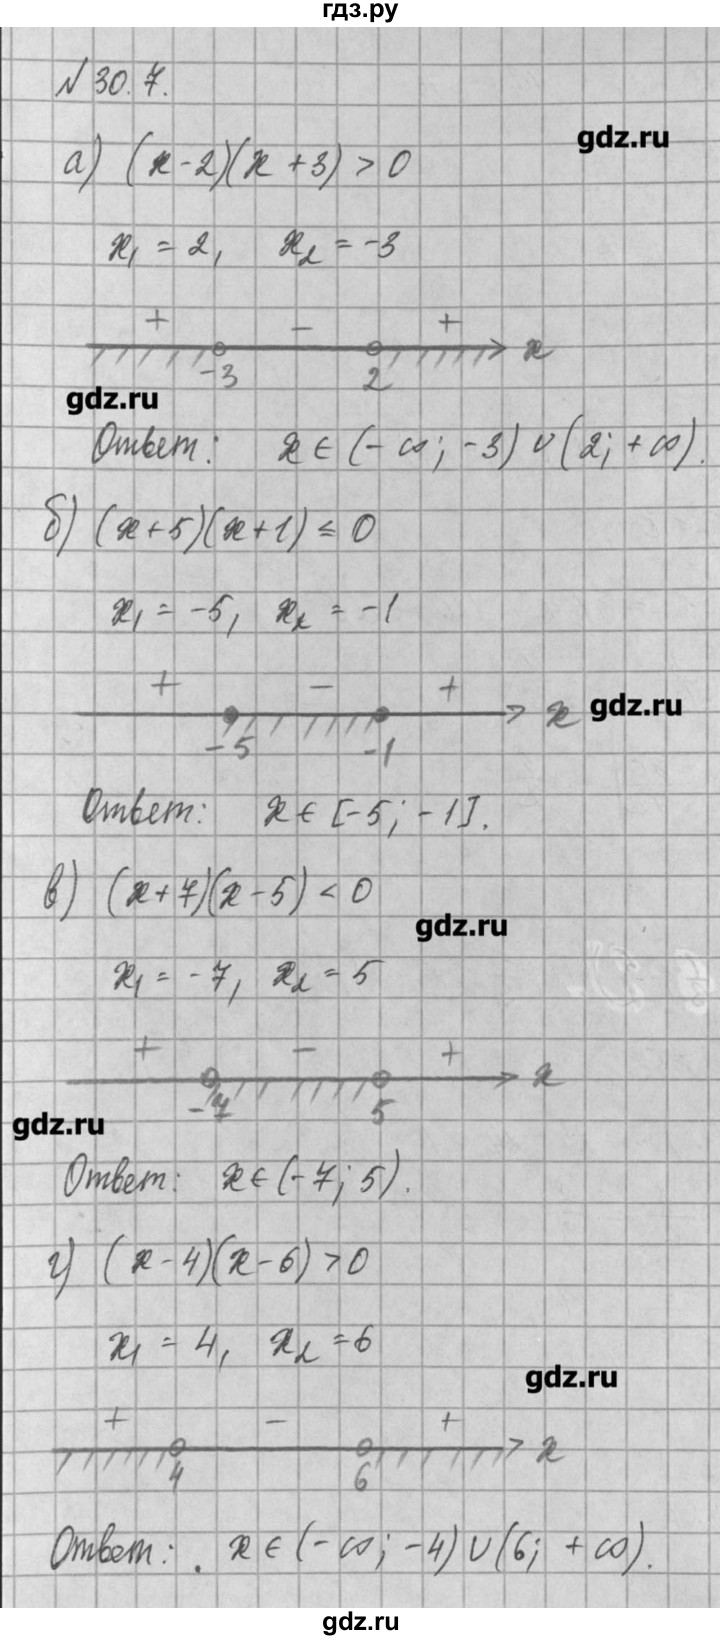 гдз.ру
№ 30.7.
gdz.ru
а) (x-2)(x+3) > 0
x₁ = 2, x₂ = -3
+ - +
-3 2 x
gdz.ru
Ответ: x ∈ (-∞; -3) ∪ (2; +∞).
б) (x+5)(x+1) ≤ 0
x₁ = -5, x₂ = -1
+ - +
-5 -1 x
gdz.ru
Ответ: x ∈ [-5; -1].
в) (x+7)(x-5) < 0
gdz.ru
x₁ = -7, x₂ = 5
+ - +
-7 5 x
gdz.ru
Ответ: x ∈ (-7; 5).
г) (x-4)(x-6) > 0
x₁ = 4, x₂ = 6
gdz.ru
+ - +
4 6 x
Ответ: x ∈ (-∞; -4) ∪ (6; +∞).
gdz.ru